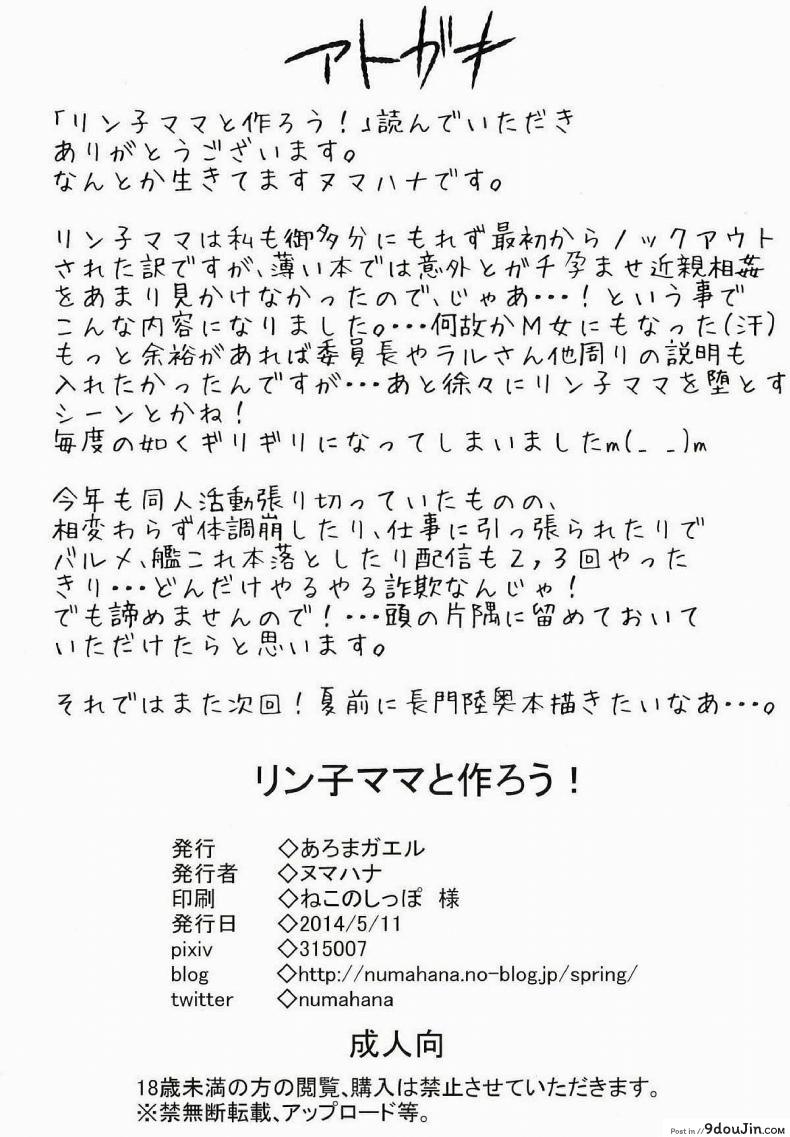 アトガキ
「リン子ママと作ろう！」読んでいただき
ありがとうございます。
なんとか生きてますヌマハナです。
リン子ママは私も御多分にもれず最初からノックアウト
された訳ですが、薄い本では意外とガチ孕ませ近親相姦
をあまり見かけなかったので、じゃあ・・・！という事で
こんな内容になりました。・・・何故かM女にもなった(汗)
もっと余裕があれば委員長やラルさん他周りの説明も
入れたかったんですが・・・あと徐々にリン子ママを堕とす
シーンとかね！
毎度の如くギリギリになってしまいましたm(_ _)m
今年も同人活動張り切っていたものの、
相変わらず体調崩したり、仕事に引っ張られたりで
バルメ、艦これ本落としたり配信も2,3回やった
きり・・・どんだけやるやる詐欺なんじゃ！
でも諦めませんので！・・・頭の片隅に留めておいて
いただけたらと思います。
それではまた次回！夏前に長門陸奥本描きたいなあ・・・。
リン子ママと作ろう！
発行 ◇あろまガエル
発行者 ◇ヌマハナ
印刷 ◇ねこのしっぽ 様
発行日 ◇2014/5/11
pixiv ◇315007
blog ◇http://numahana.no-blog.jp/spring/
twitter ◇numahana
成人向
18歳未満の方の閲覧、購入は禁止させていただきます。
※禁無断転載、アップロード等。
Post in // 9douJin.com